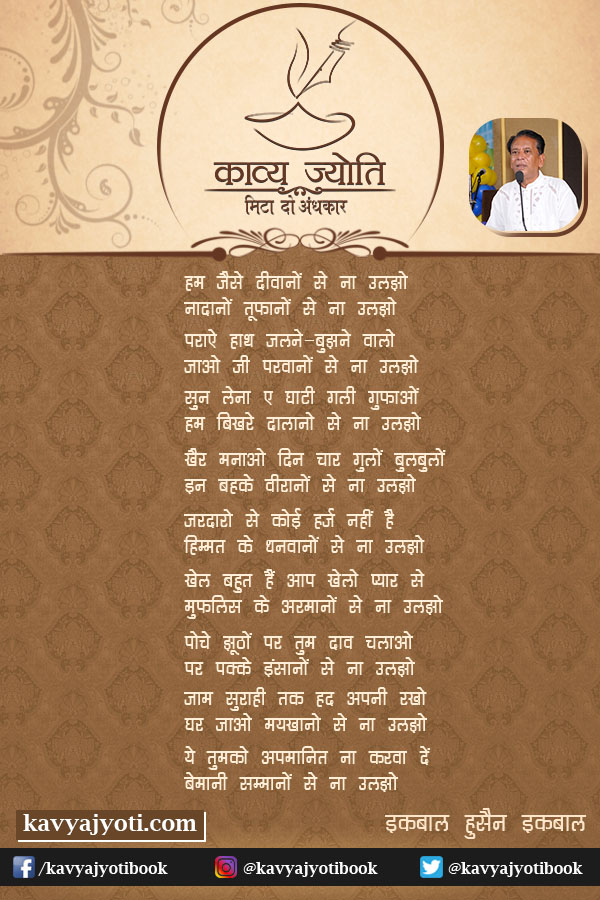 काव्य ज्योति
मिटा दो अंधकार
हम जैसे दीवानों से ना उलझो
नादानों तूफानों से ना उलझो
पराऐ हाथ जलने-बुझने वालो
जाओ जी परवानों से ना उलझो
सुन लेना ए घाटी गली गुफाओं
हम बिखरे दालानो से ना उलझो
खैर मनाओ दिन चार गुलों बुलबुलों
इन बहके वीरानों से ना उलझो
जरदारो से कोई हर्ज नहीं है
हिम्मत के धनवानों से ना उलझो
खेल बहुत हैं आप खेलो प्यार से
मुफलिस के अरमानों से ना उलझो
पोचे झूठों पर तुम दाव चलाओ
पर पक्के इंसानों से ना उलझो
जाम सुराही तक हद अपनी रखो
घर जाओ मयखानो से ना उलझो
ये तुमको अपमानित ना करवा दें
बेमानी सम्मानों से ना उलझो
kavyajyoti.com
इकबाल हुसैन इकबाल
/kavyajyotibook
@kavyajyotibook
@kavyajyotibook